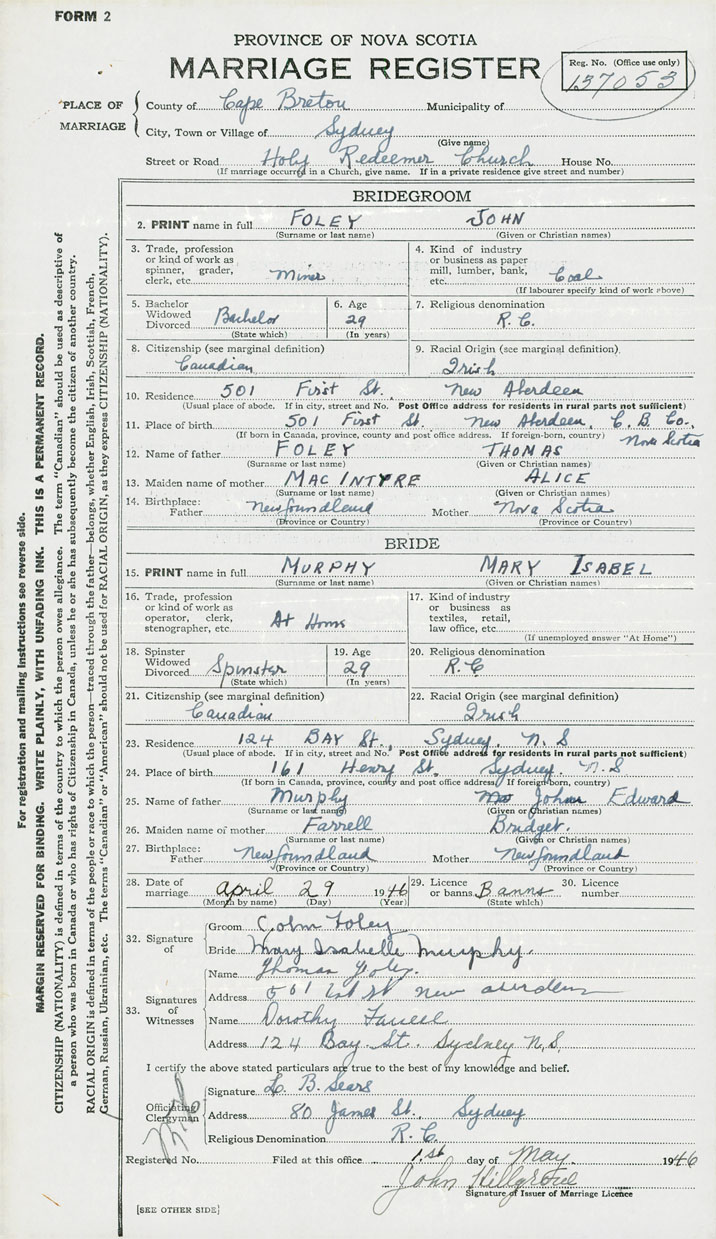 FORM 2
PROVINCE OF NOVA SCOTIA
MARRIAGE REGISTER
Reg. No. (Office use only)
137053
PLACE OF MARRIAGE
County of Cape Breton Municipality of
City, Town or Village of Sydney
(Give name)
Street or Road Holy Redeemer Church House No.
(If marriage occurred in a Church, give name. If in a private residence give street and number)
BRIDEGROOM
2. PRINT name in full FOLEY JOHN
(Surname or last name) (Given or Christian names)
3. Trade, profession or kind of work as spinner, grader, clerk, etc. Miner
4. Kind of industry or business as paper mill, lumber, bank, etc. Coal
(If labourer specify kind of work above)
5. Bachelor Widowed Divorced Bachelor
(State which)
6. Age 29
(In years)
7. Religious denomination
R. C.
8. Citizenship (see marginal definition)
Canadian
9. Racial Origin (see marginal definition)
Irish
10. Residence 501 First St. New Aberdeen
(Usual place of abode. If in city, street and No. Post Office address for residents in rural parts not sufficient)
11. Place of birth 501 First St. New Aberdeen, C. B. Co., Nova Scotia
(If born in Canada, province, county and post office address. If foreign-born, country)
12. Name of father FOLEY THOMAS
(Surname or last name) (Given or Christian names)
13. Maiden name of mother MAC INTYRE ALICE
(Surname or last name) (Given or Christian names)
14. Birthplace: Father Newfoundland Mother Nova Scotia
(Province or Country) (Province or Country)
BRIDE
15. PRINT name in full MURPHY MARY ISABEL
(Surname or last name) (Given or Christian names)
16. Trade, profession or kind of work as operator, clerk, stenographer, etc. At Home
17. Kind of industry or business as textiles, retail, law office, etc.
(If unemployed answer "At Home")
18. Spinster Widowed Divorced Spinster
(State which)
19. Age 29
(In years)
20. Religious denomination
R. C
21. Citizenship (see marginal definition)
Canadian
22. Racial Origin (see marginal definition)
Irish
23. Residence 124 BAY St., Sydney N. S
(Usual place of abode. If in city, street and No. Post Office address for residents in rural parts not sufficient)
24. Place of birth 161 Henry St. Sydney. N. S
(If born in Canada, province, county and post office address. If foreign-born, country)
25. Name of father Murphy John Edward
(Surname or last name) (Given or Christian names)
26. Maiden name of mother Farrell Bridget.
(Surname or last name) (Given or Christian names)
27. Birthplace: Father Newfoundland Mother Newfoundland
(Province or Country) (Province or Country)
28. Date of marriage April 29 1946
(Month by name) (Day) (Year)
29. Licence or banns Banns
(State which)
30. Licence number
32. Signature of
Groom Foley
Bride Mary Isabelle Murphy.
33. Signatures of Witnesses
Name Thomas Foley.
Address 501 1st St New Aberdeen
Name Dorothy
Address 124 Bay St. Sydney N.S.
I certify the above stated particulars are true to the best of my knowledge and belief.
Officiating Clergyman
Signature L. B. Sears
Address 80 James St., Sydney
Religious Denomination R. C.
Registered No. Filed at this office 1.st day of May 1946
John
Signature of Issuer of Marriage Licence
[SEE OTHER SIDE]
For registration and mailing instructions see reverse side.
MARGIN RESERVED FOR BINDING. WRITE PLAINLY, WITH UNFADING INK. THIS IS A PERMANENT RECORD.
CITIZENSHIP (NATIONALITY) is defined in terms of the country to which the person owes allegiance. The term "Canadian" should be used as descriptive of
a person who was born in Canada or who has rights of Citizenship in Canada, unless he or she has subsequently become the citizen of another country.
RACIAL ORIGIN is defined in terms of the people or race to which the person—traced through the father—belongs, whether English, Irish, Scottish, French,
German, Russian, Ukrainian, etc. The terms "Canadian" or "American" should not be used for RACIAL ORIGIN, as they express CITIZENSHIP (NATIONALITY).